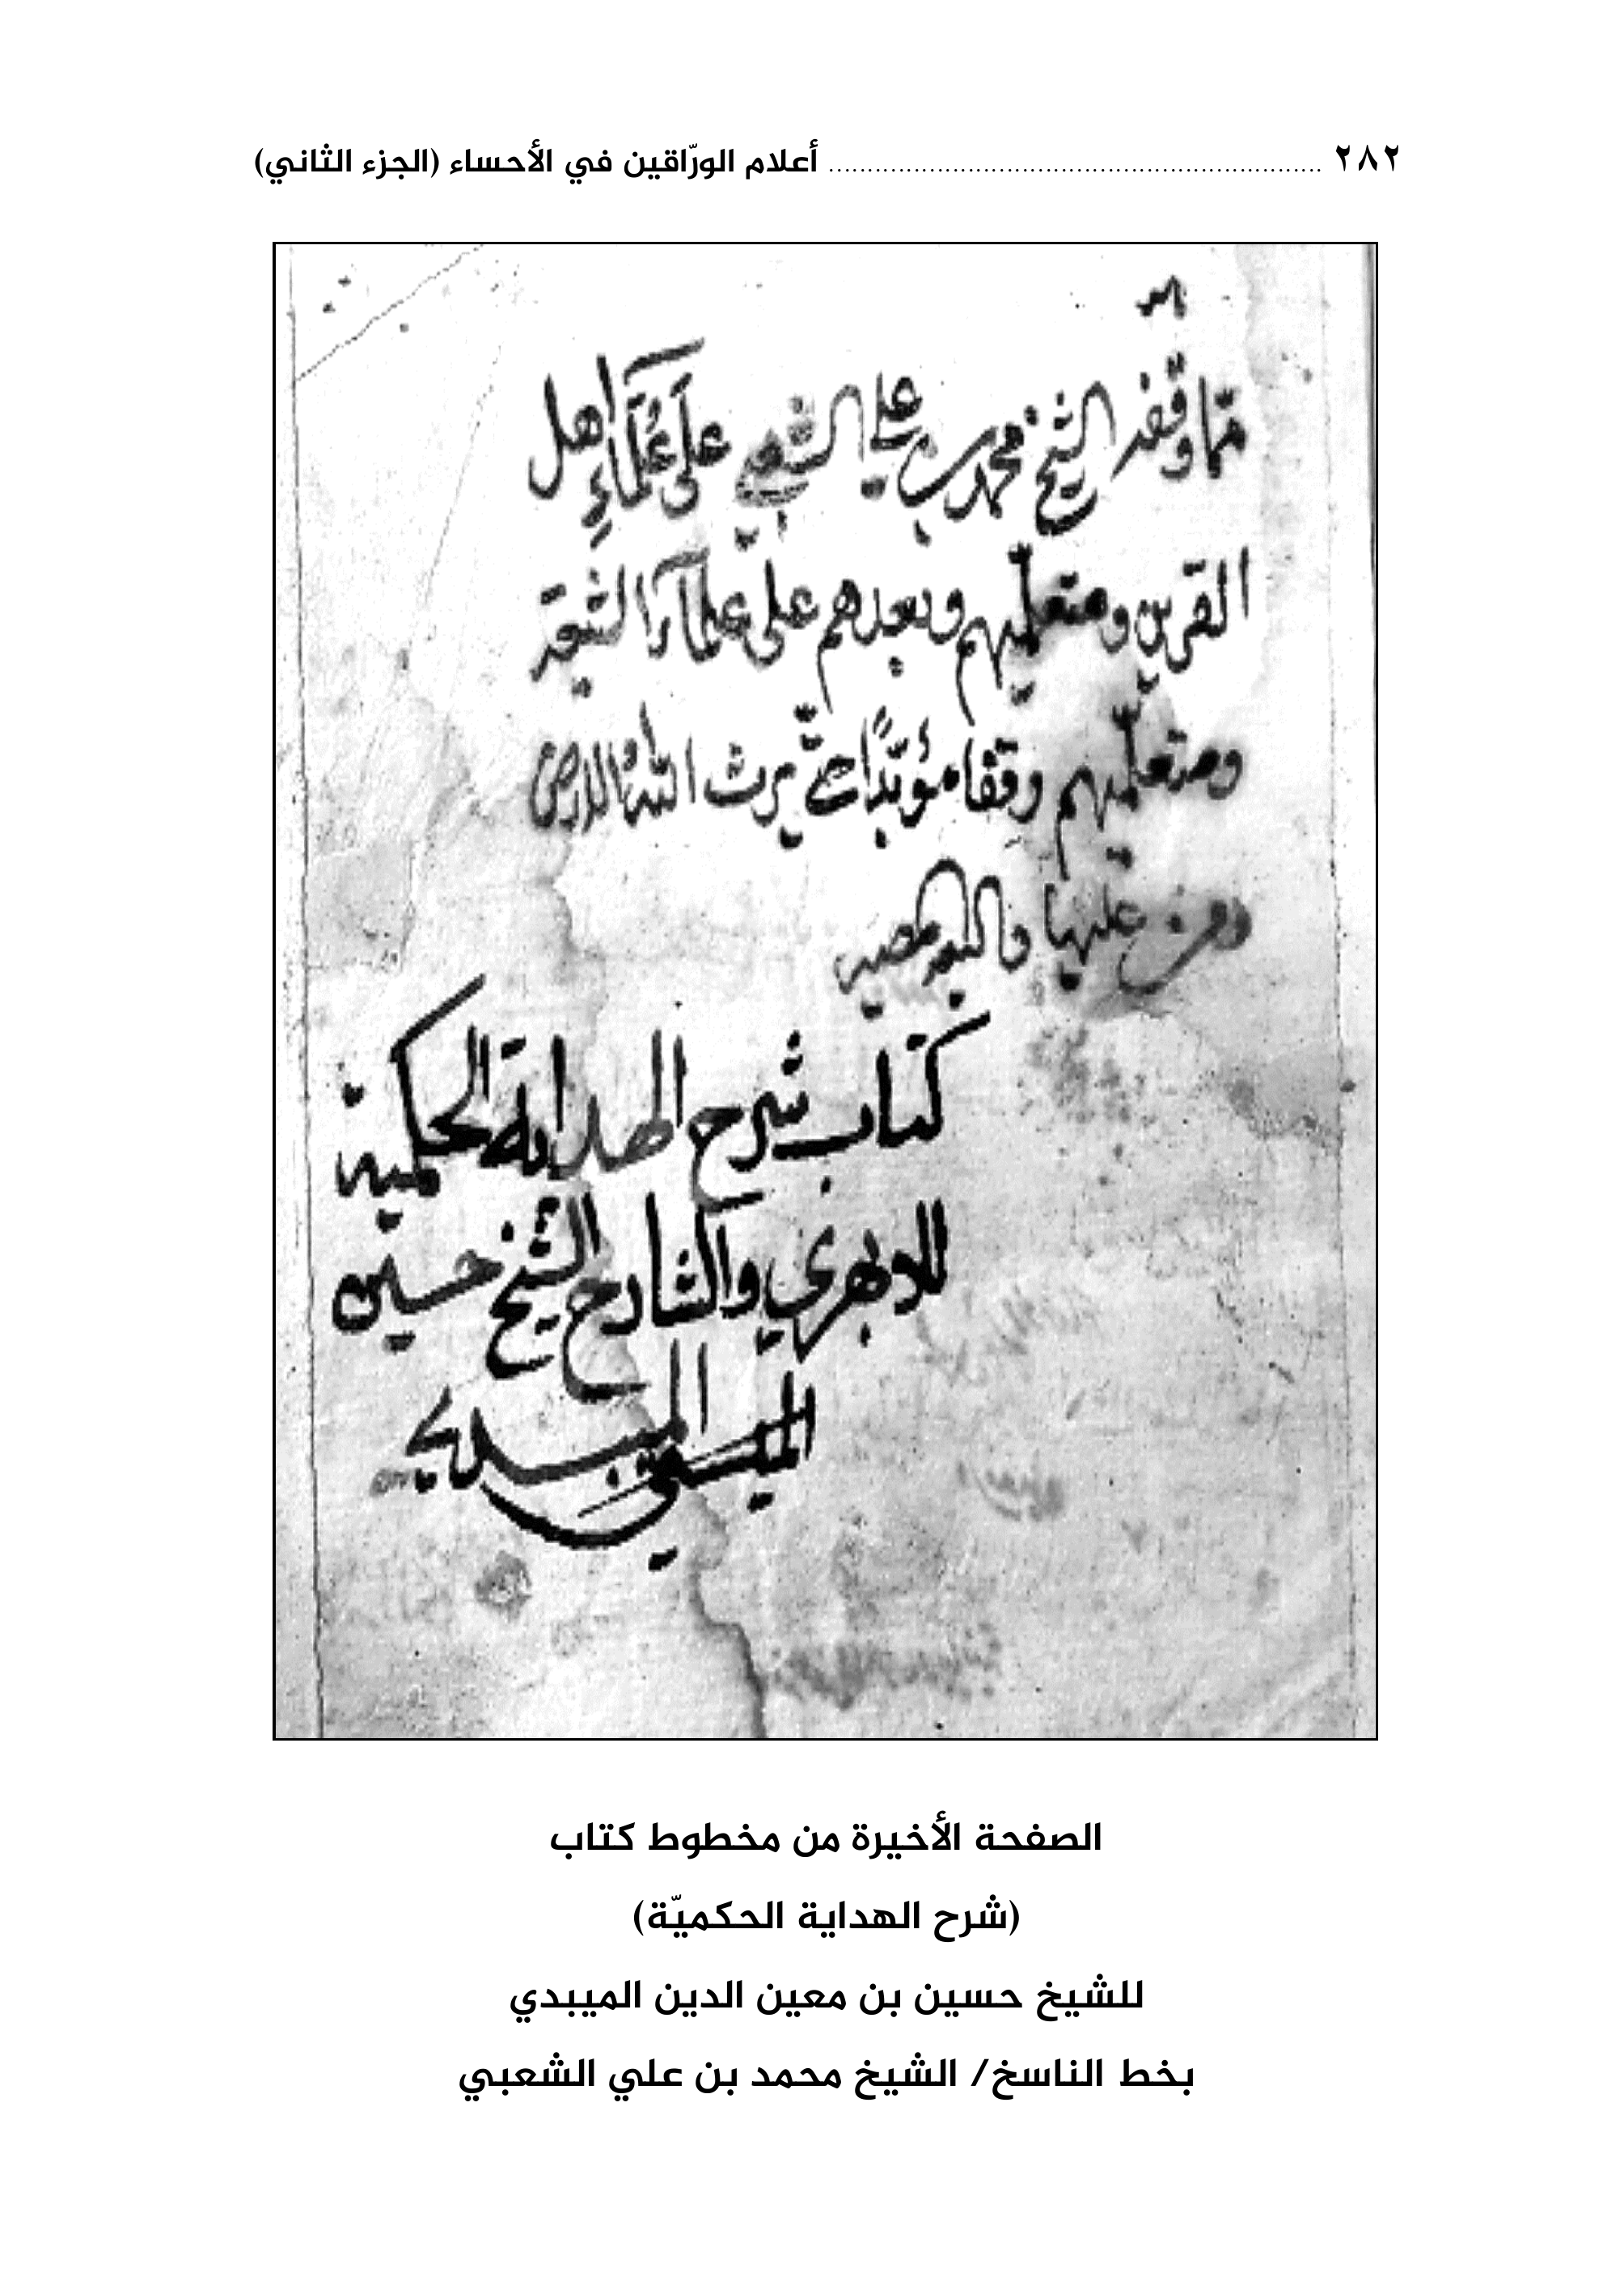 ٢٨٢ ............................................................... أعلام الورّاقين في الأحساء (الجزء الثاني)
ممّا وقفه الشيخ محمد بن علي الشعبي على علماء اهل
القرين ومتعلّميهم وبعدهم على علمآء الشيعة
ومتعلّميهم وقفا مؤبّدًا حتّى يرث اللهُ الارض
ومن عليها واليه المصير
كتاب شرح الهداية الحكمية
للابهري والشارح الشيخ حسين
الميبدي
الصفحة الأخيرة من مخطوط كتاب
(شرح الهداية الحكميّة)
للشيخ حسين بن معين الدين الميبدي
بخط الناسخ/ الشيخ محمد بن علي الشعبي